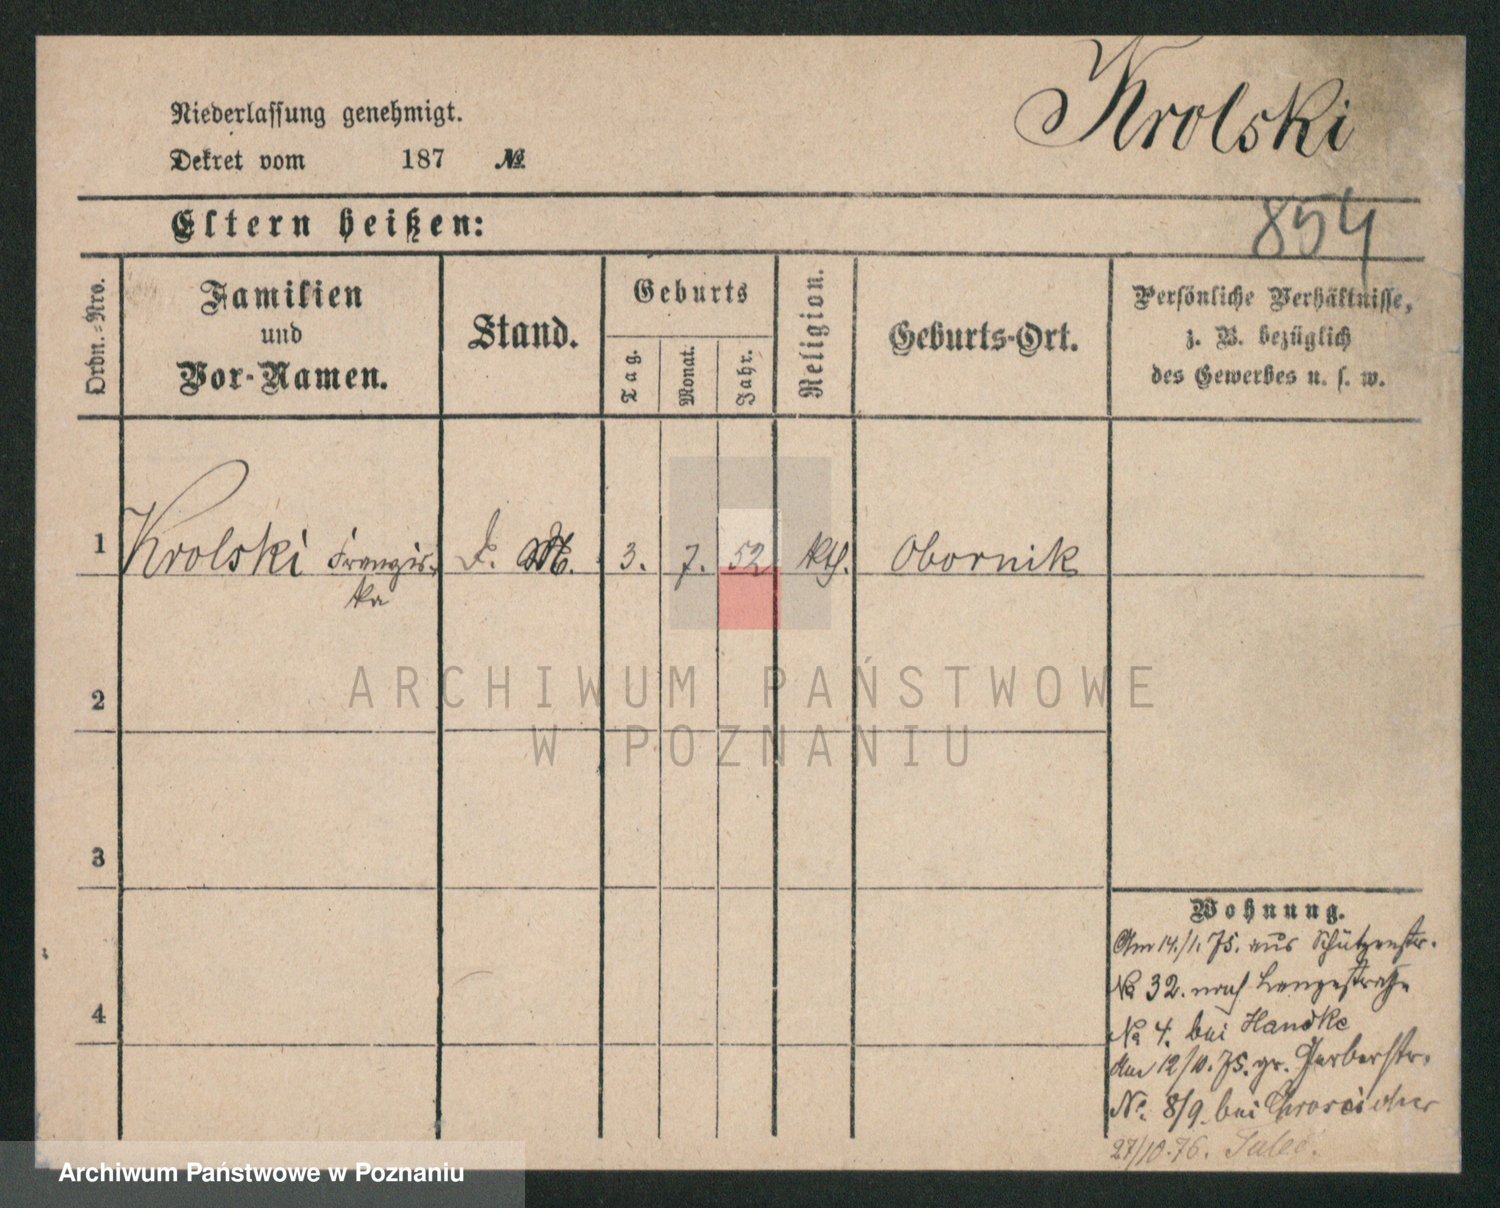 Krolski
Niederlassung genehmigt.
Dekret vom 187 №
854
Eltern heißen:
Ordn.-Nro.
Familien
und
Vor-Namen.
Stand.
Geburts
Tag.
Monat.
Jahr.
Religion.
Geburts-Ort.
Persönliche Verhältnisse,
z. B. bezüglich
des Gewerbes u. s. w.
1 Krolski Franzis- D. M. 3. 7. 52 kth. Obornik
ka
2
3
4
Wohnung.
Am 14./1. 75. aus Schützenstr.
№ 32. nach Langestraße
№ 4. bei Handke
Am 12/10. 75. gr. Gerberstr.
No. 8/9. bei
27/10. 76.
ARCHIWUM PAŃSTWOWE
W POZNANIU
Archiwum Państwowe w Poznaniu